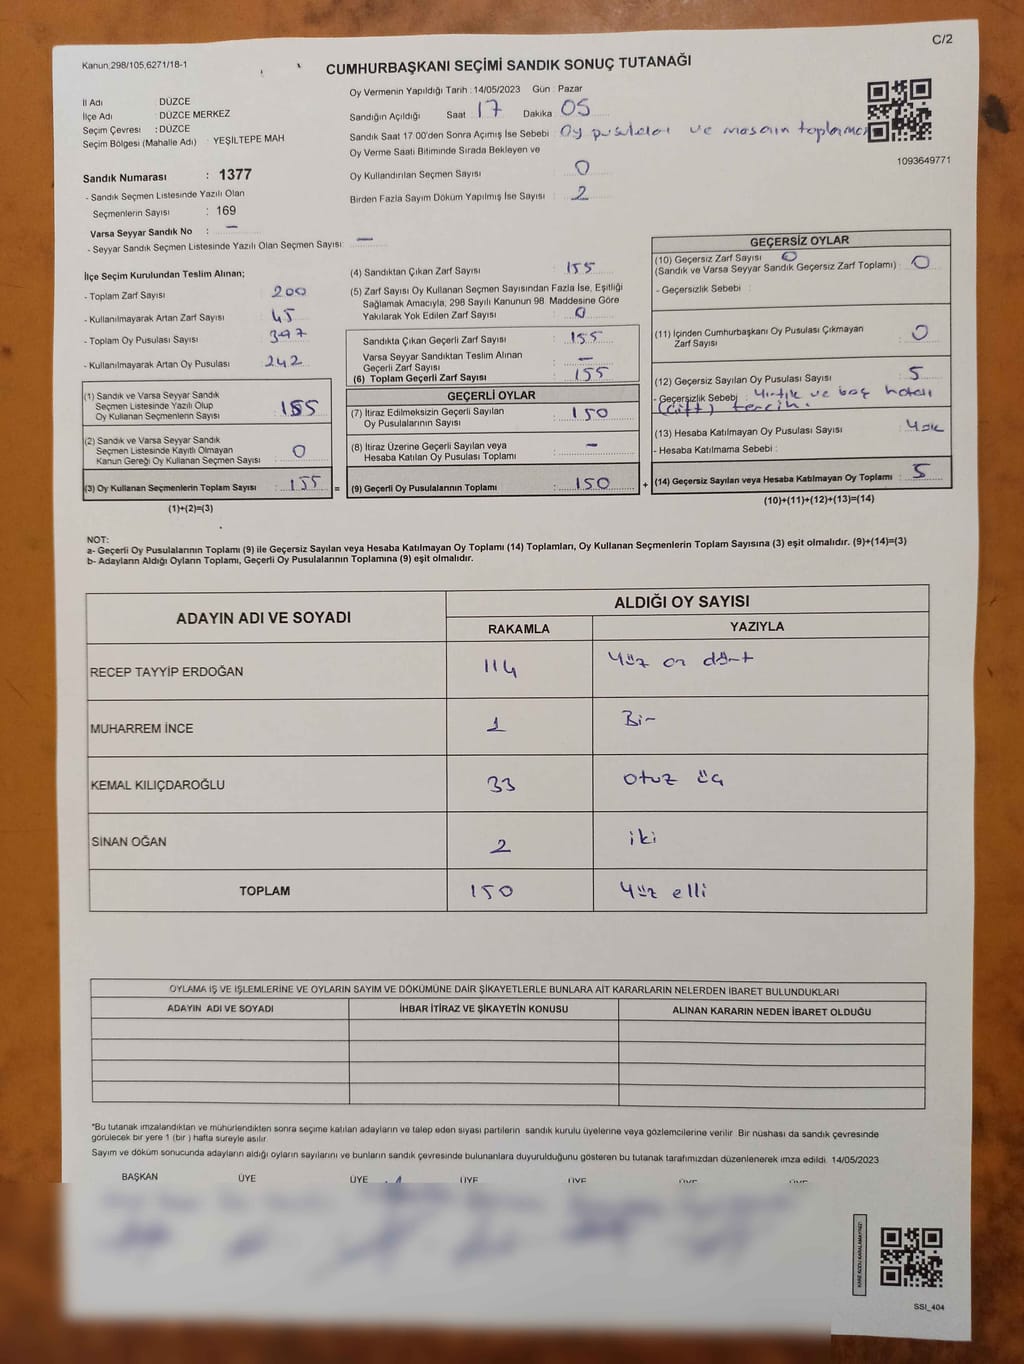 C/2
Kanun 298/105,6271/18-1
CUMHURBAŞKANI SEÇİMİ SANDIK SONUÇ TUTANAĞI
İl Adı DÜZCE
İlçe Adı DÜZCE MERKEZ
Seçim Çevresi : DÜZCE
Seçim Bölgesi (Mahalle Adı) YEŞİLTEPE MAH
Oy Vermenin Yapıldığı Tarih : 14/05/2023 Gün : Pazar
Sandığın Açıldığı Saat 17 Dakika 05
Sandık Saat 17 00'den Sonra Açımış İse Sebebi : Oy pusulaları ve masanın toplanması
Oy Verme Saati Bitiminde Sırada Bekleyen ve
Oy Kullandırılan Seçmen Sayısı : 0
Birden Fazla Sayım Döküm Yapılmış İse Sayısı : 2
1093649771
Sandık Numarası : 1377
- Sandık Seçmen Listesinde Yazılı Olan
Seçmenlerin Sayısı : 169
Varsa Seyyar Sandık No : —
- Seyyar Sandık Seçmen Listesinde Yazılı Olan Seçmen Sayısı: —
İlçe Seçim Kurulundan Teslim Alınan;
- Toplam Zarf Sayısı : 200
- Kullanılmayarak Artan Zarf Sayısı : 45
- Toplam Oy Pusulası Sayısı : 397
- Kullanılmayarak Artan Oy Pusulası : 242
(1) Sandık ve Varsa Seyyar Sandık
Seçmen Listesinde Yazılı Olup
Oy Kullanan Seçmenlerin Sayısı : 155
(2) Sandık ve Varsa Seyyar Sandık
Seçmen Listesinde Kayıtlı Olmayan
Kanun Gereği Oy Kullanan Seçmen Sayısı : 0
(3) Oy Kullanan Seçmenlerin Toplam Sayısı : 155 =
(1)+(2)=(3)
(4) Sandıktan Çıkan Zarf Sayısı : 155
(5) Zarf Sayısı Oy Kullanan Seçmen Sayısından Fazla İse, Eşitliği
Sağlamak Amacıyla, 298 Sayılı Kanunun 98. Maddesine Göre
Yakılarak Yok Edilen Zarf Sayısı : 0
Sandıkta Çıkan Geçerli Zarf Sayısı : 155
Varsa Seyyar Sandıktan Teslim Alınan
Geçerli Zarf Sayısı : —
(6) Toplam Geçerli Zarf Sayısı : 155
GEÇERLİ OYLAR
(7) İtiraz Edilmeksizin Geçerli Sayılan
Oy Pusulalarının Sayısı : 150
(8) İtiraz Üzerine Geçerli Sayılan veya
Hesaba Katılan Oy Pusulası Toplamı : —
(9) Geçerli Oy Pusulalarının Toplamı : 150 +
GEÇERSİZ OYLAR
(10) Geçersiz Zarf Sayısı 0
(Sandık ve Varsa Seyyar Sandık Geçersiz Zarf Toplamı) : 0
- Geçersizlik Sebebi :
(11) İçinden Cumhurbaşkanı Oy Pusulası Çıkmayan
Zarf Sayısı : 0
(12) Geçersiz Sayılan Oy Pusulası Sayısı : 5
- Geçersizlik Sebebi : Yırtık ve boş hatalı
(çift) tercih.
(13) Hesaba Katılmayan Oy Pusulası Sayısı : Yok
- Hesaba Katılmama Sebebi :
(14) Geçersiz Sayılan veya Hesaba Katılmayan Oy Toplamı : 5
(10)+(11)+(12)+(13)=(14)
NOT:
a- Geçerli Oy Pusulalarının Toplamı (9) ile Geçersiz Sayılan veya Hesaba Katılmayan Oy Toplamı (14) Toplamları, Oy Kullanan Seçmenlerin Toplam Sayısına (3) eşit olmalıdır. (9)+(14)=(3)
b- Adayların Aldığı Oyların Toplamı, Geçerli Oy Pusulalarının Toplamına (9) eşit olmalıdır.
ADAYIN ADI VE SOYADI ALDIĞI OY SAYISI
RAKAMLA YAZIYLA
RECEP TAYYİP ERDOĞAN 114 Yüz on dört
MUHARREM İNCE 1 Bir
KEMAL KILIÇDAROĞLU 33 otuz üç
SİNAN OĞAN 2 iki
TOPLAM 150 Yüz elli
OYLAMA İŞ VE İŞLEMLERİNE VE OYLARIN SAYIM VE DÖKÜMÜNE DAİR ŞİKAYETLERLE BUNLARA AİT KARARLARIN NELERDEN İBARET BULUNDUKLARI
ADAYIN ADI VE SOYADI İHBAR İTİRAZ VE ŞİKAYETİN KONUSU ALINAN KARARIN NEDEN İBARET OLDUĞU
*Bu tutanak imzalandıktan ve mühürlendikten sonra seçime katılan adayların ve talep eden siyasi partilerin sandık kurulu üyelerine veya gözlemcilerine verilir Bir nüshası da sandık çevresinde
görülecek bir yere 1 (bir ) hafta süreyle asılır
Sayım ve döküm sonucunda adayların aldığı oyların sayılarını ve bunların sandık çevresinde bulunanlara duyurulduğunu gösteren bu tutanak tarafımızdan düzenlenerek imza edildi. 14/05/2023
BAŞKAN ÜYE ÜYE ÜYE ÜYE ÜYE ÜYE
KARE KODU KARALAMAYINIZ!
SSI_404